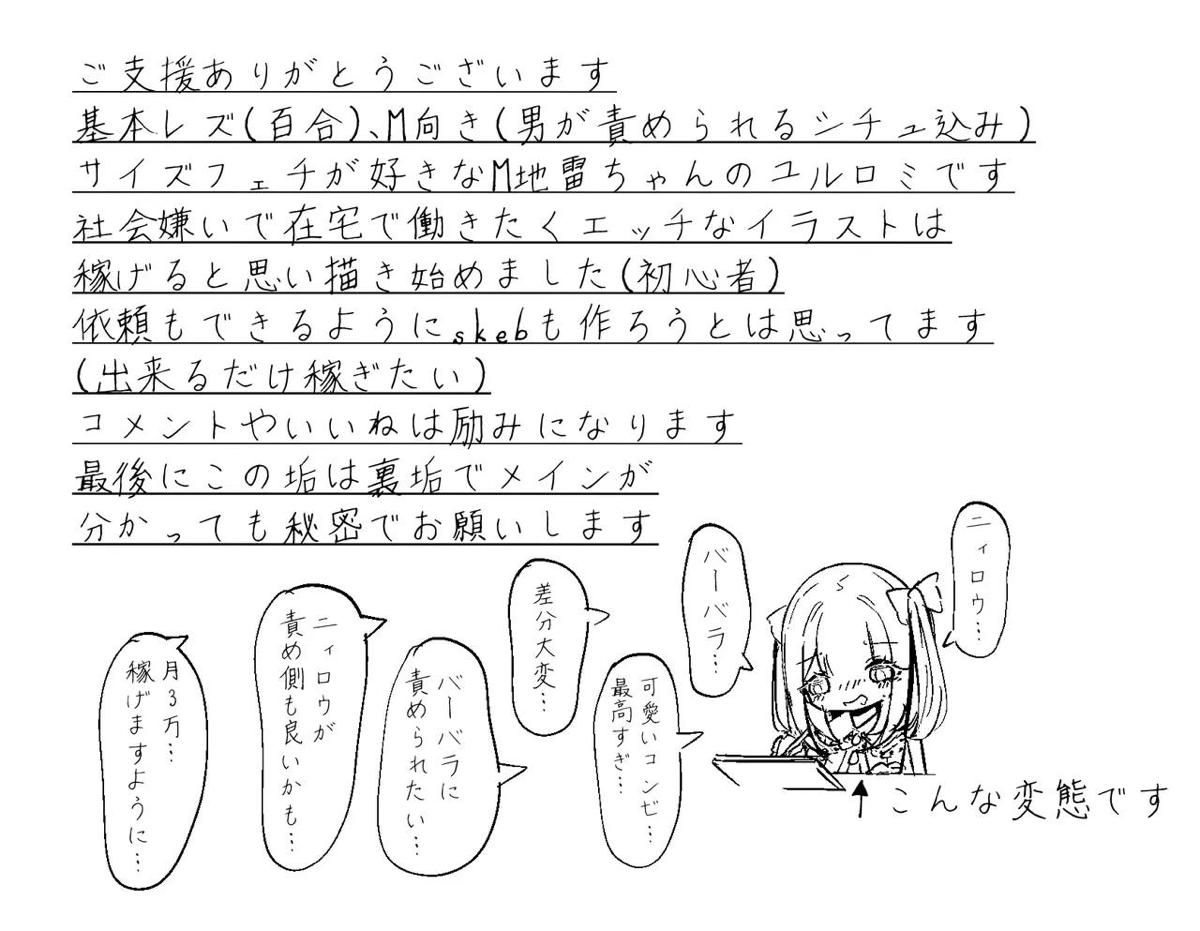 ご支援ありがとうございます
基本レズ(百合)、M向き(男が責められるシチュ込み)
サイズフェチが好きなM地雷ちゃんのユルロミです
社会嫌いで在宅で働きたくエッチなイラストは
稼げると思い描き始めました(初心者)
依頼もできるようにskebも作ろうとは思ってます
(出来るだけ稼ぎたい)
コメントやいいねは励みになります
最後にこの垢は裏垢でメインが
分かっても秘密でお願いします
ニィロウ…
バーバラ…
可愛いコンビ…
最高すぎ…
差分大変…
バーバラに
責められたい…
ニィロウが
責め側も良いかも…
月3万…
稼げますように…
↑こんな変態です